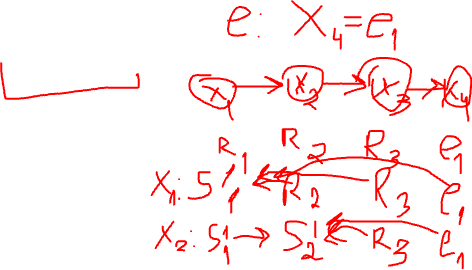 e: X₄=e₁
X₁ → X₂ → X₃ → X₄
R₁ R₂ R₃ e₁
X₁: S¹₁ R₂ R₃ e₁
X₂: S¹₁ → S¹₂ R₃ e₁